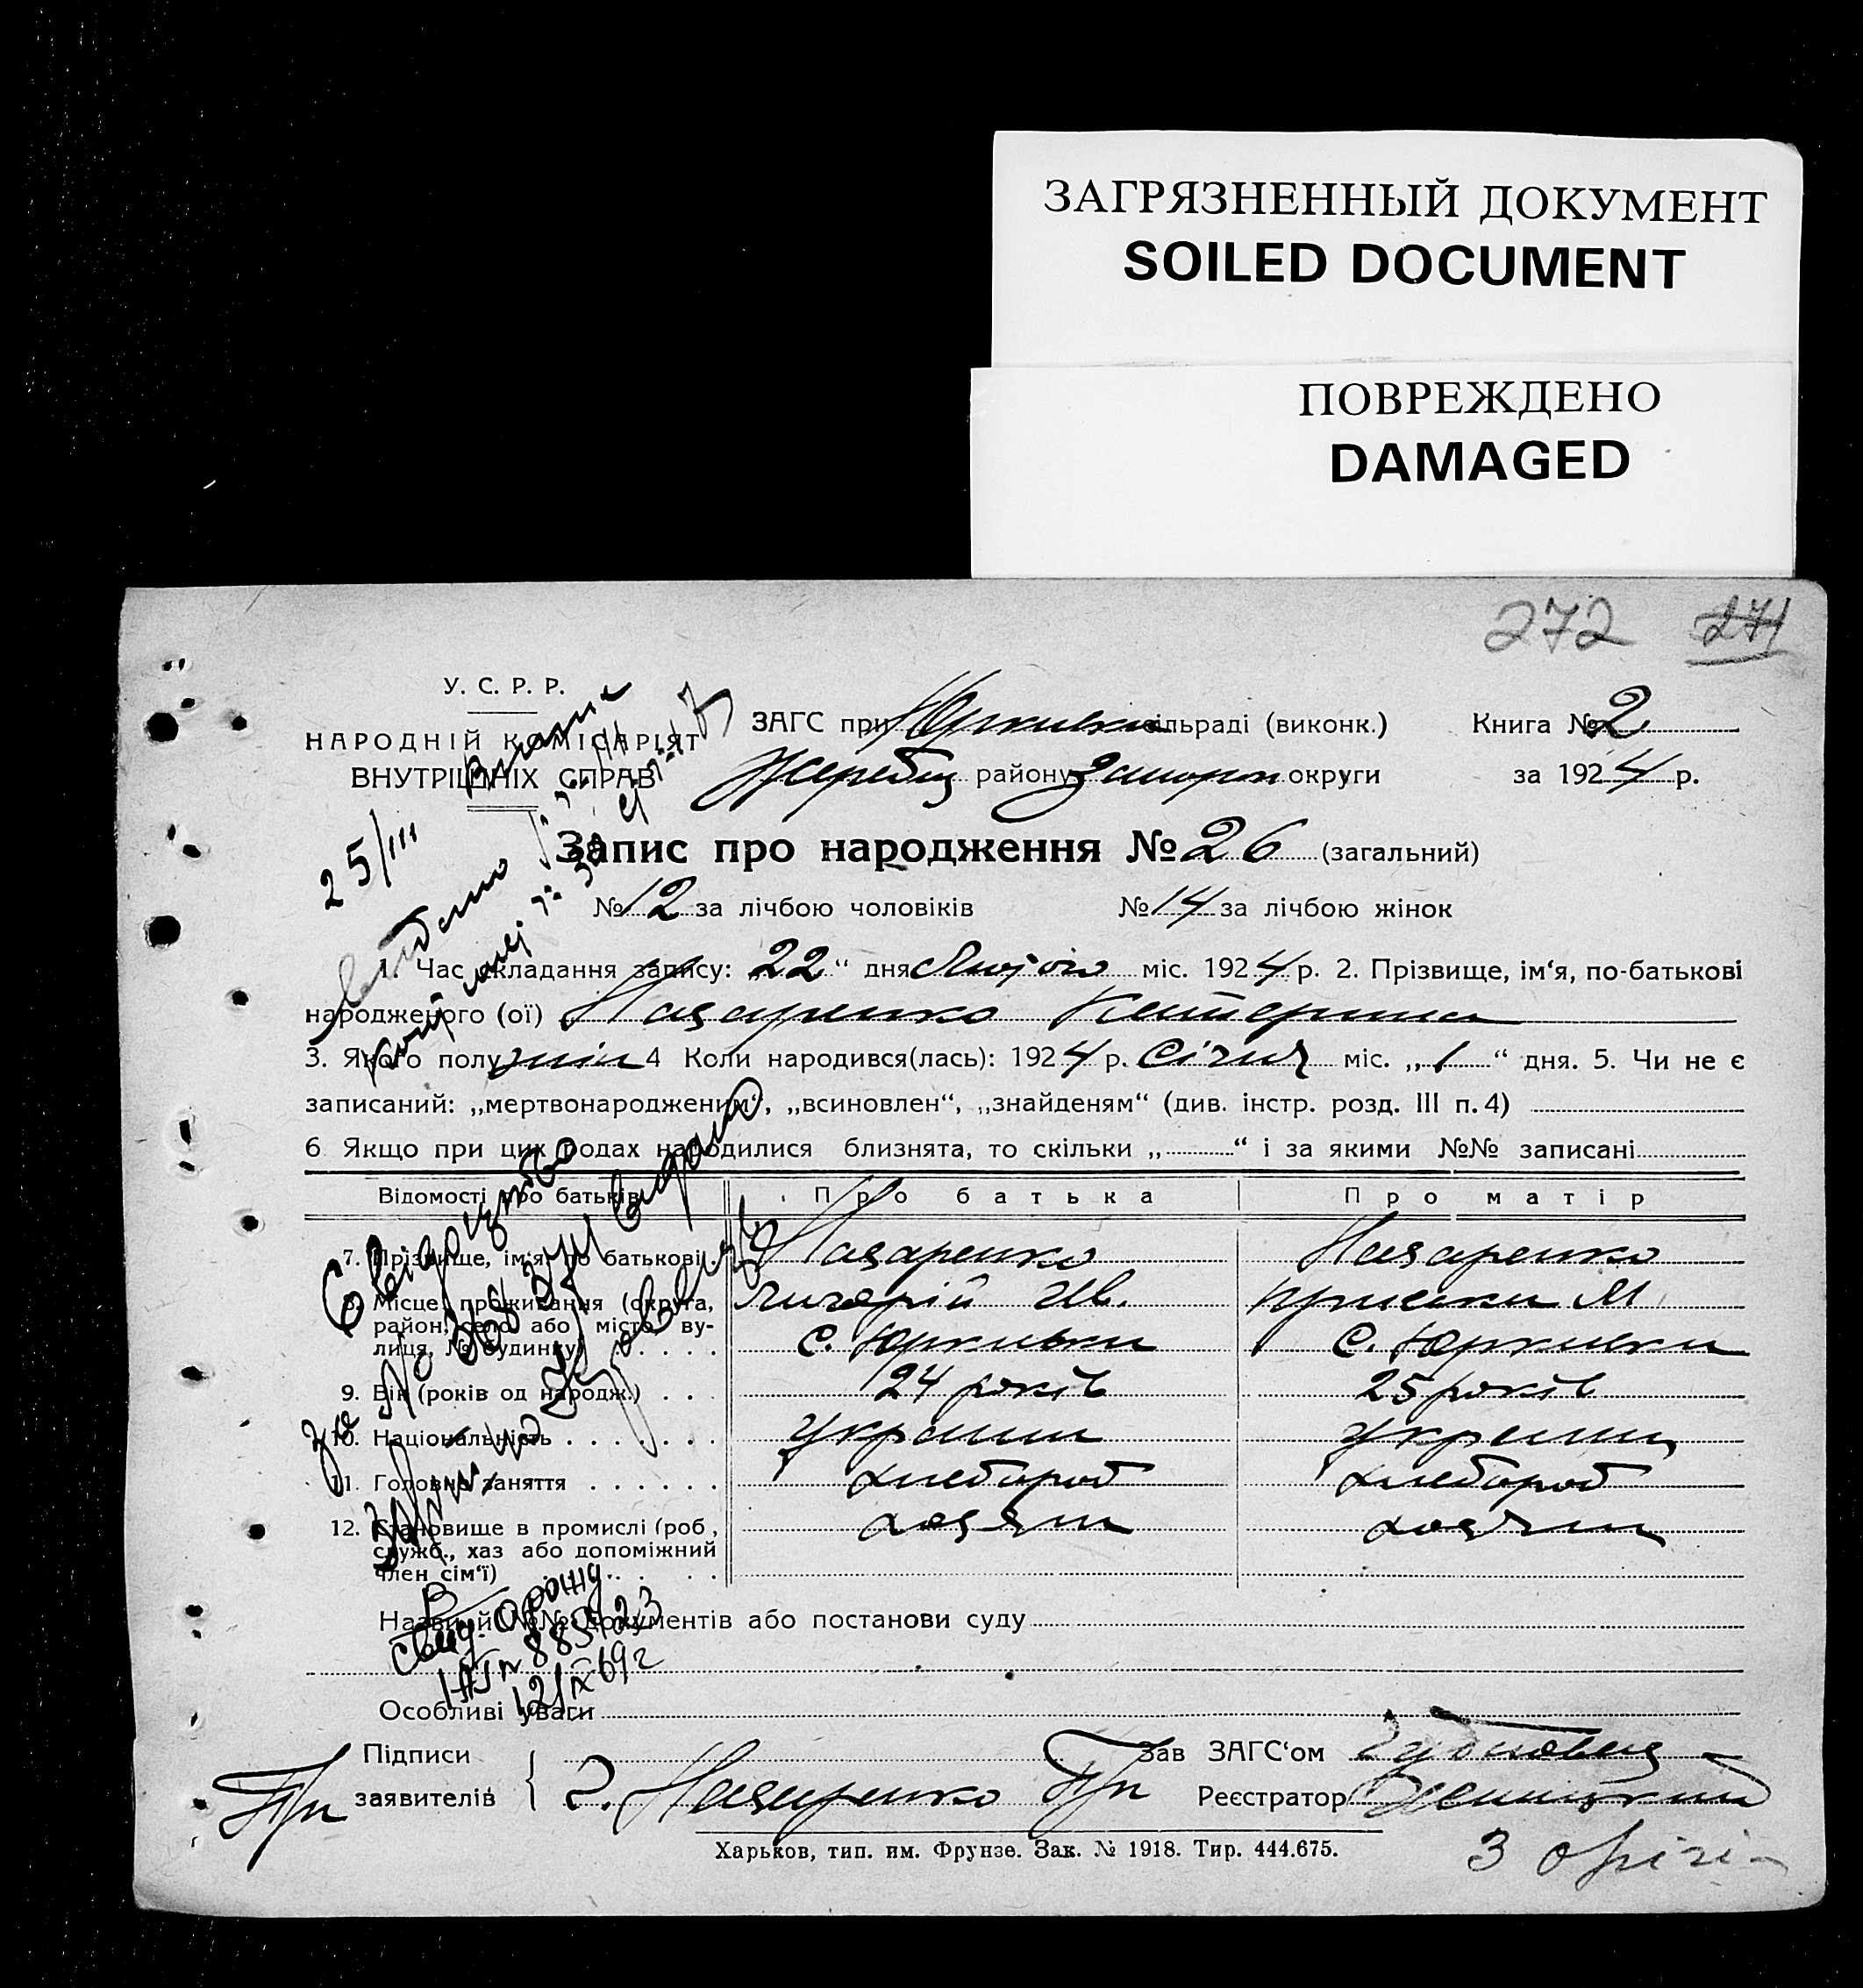 ЗАГРЯЗНЕННЫЙ ДОКУМЕНТ
SOILED DOCUMENT
ПОВРЕЖДЕНО
DAMAGED
272 271
У. С. Р. Р.
НАРОДНІЙ КОМІСАРІЯТ
ВНУТРІШНІХ СПРАВ
ЗАГС при Юркивск сільраді (виконк.) Книга № 2
Жеребец району Запорож округи за 1924 р.
25/III
Запис про народження № 26 (загальний)
№ 12 за лічбою чоловіків № 14 за лічбою жінок
1. Час складання запису: „22“ дня Лютого міс. 1924 р. 2. Прізвище, ім‘я, по-батькові
народженого (ої) Назаренко Катерина
3. Якого полу жін 4 Коли народився(лась): 1924 р. Січня міс. „1“ дня. 5. Чи не є
записаний: „мертвонародженим“, „всиновлен“, „знайденям“ (див. інстр. розд. III п. 4)
6 Якщо при цих родах народилися близнята, то скільки „ “ і за якими №№ записані
Відомості про батьків Про батька Про матір
7. Прізвище, ім‘я, по батькові Назаренко Назаренко
Григорій Ив. М
8. Місце проживання (округа, район, село або місто, вулиця, № будинку) с. Юркивки с. Юркивки
9. Вік (років од народж.) 24 років 25 років
10. Національність Українец Українц
11. Головне заняття хлебороб хлебороб
12. Становище в промислі (роб, служб., хаз або допоміжний член сім‘ї) хозяин хозяин
Назви й №№ документів або постанови суду
Особливі уваги
Свідоцтво
за № 368 видано
свид. о рожд
885123
12/IX 69 г
Підписи
заявителів Г. Назаренко
Зав ЗАГС‘ом
Реєстратор
Харьков, тип. им. Фрунзе. Зак. № 1918. Тир. 444.675.